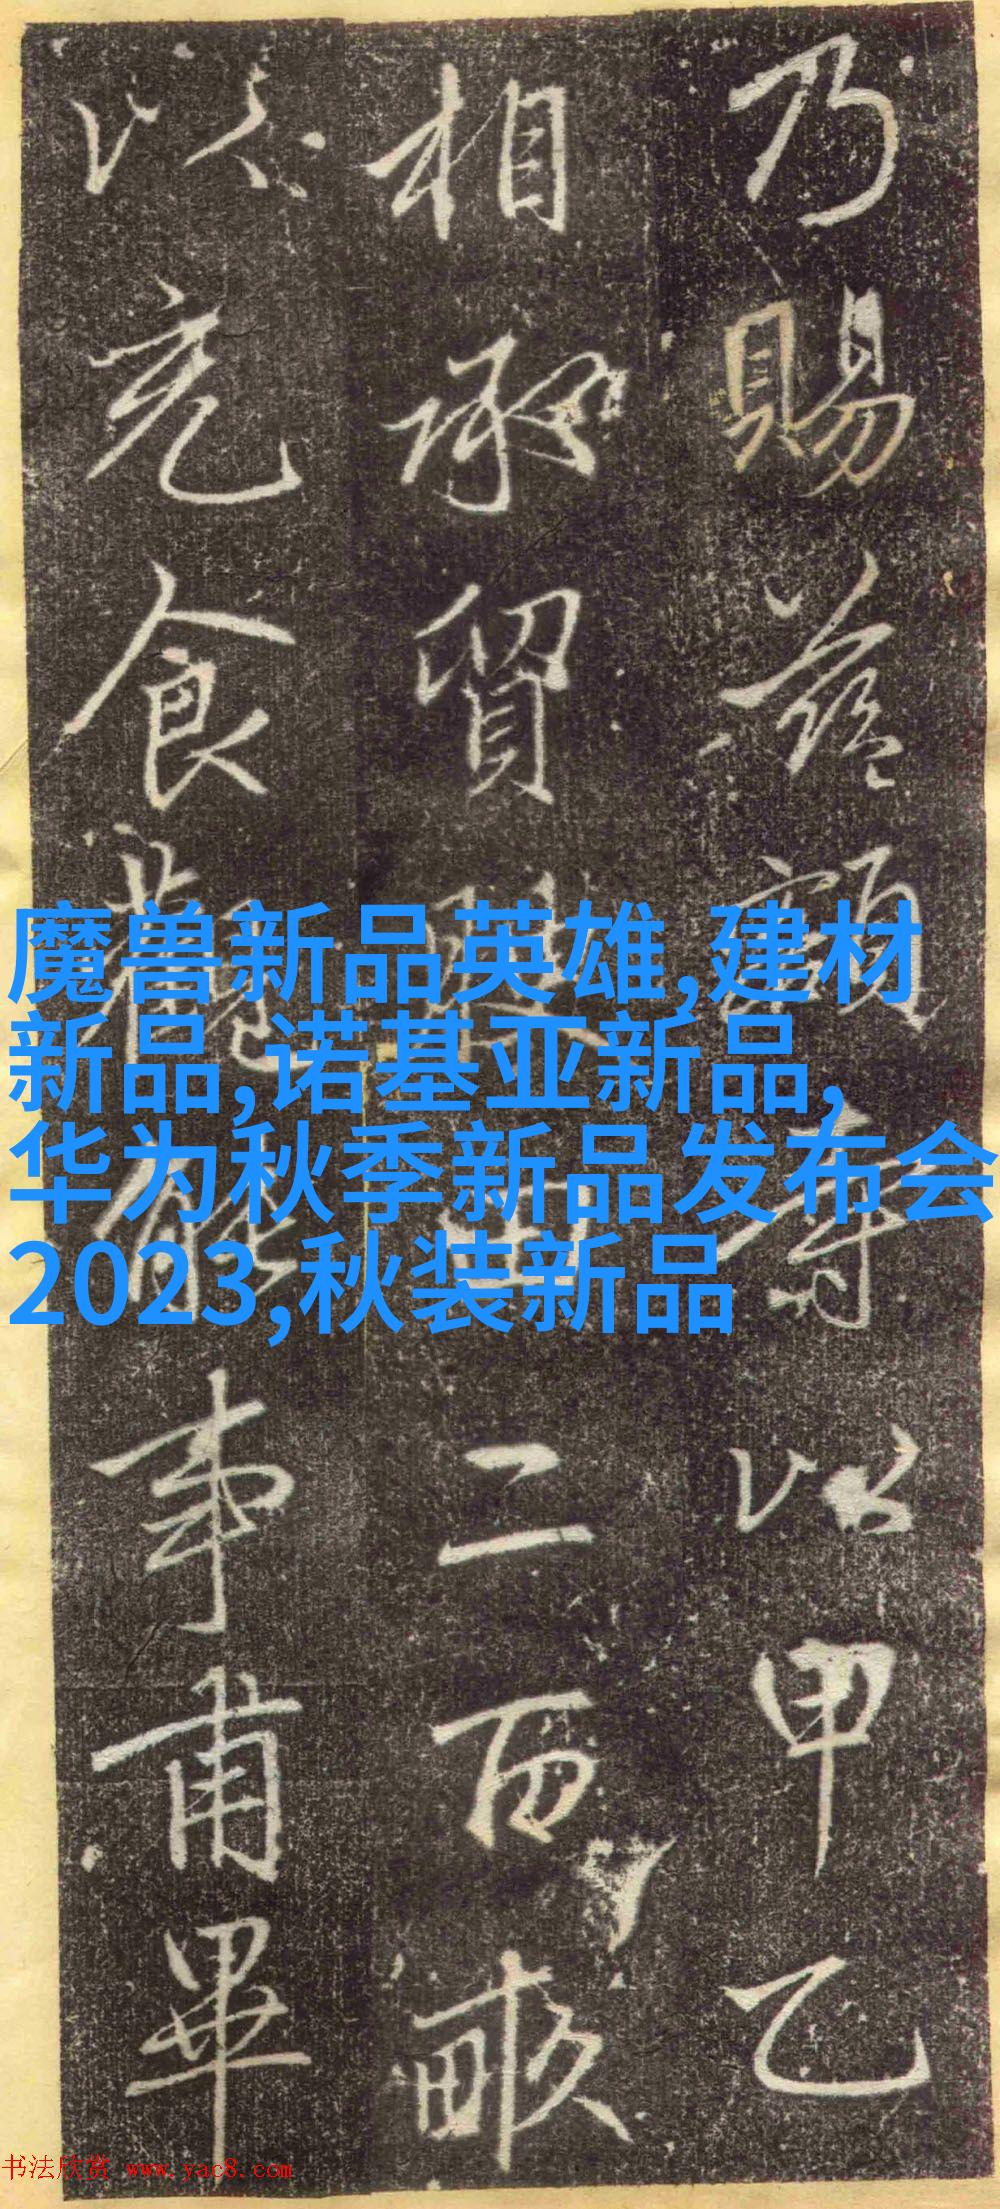 乃賜益額寺以甲乙
相承貿田二百畝
以充食衆能事甫畢
魔兽新品英雄,建材
新品,诺基亚新品,
华为秋季新品发布会
2023,秋装新品
书法欣赏 www.yac8.com